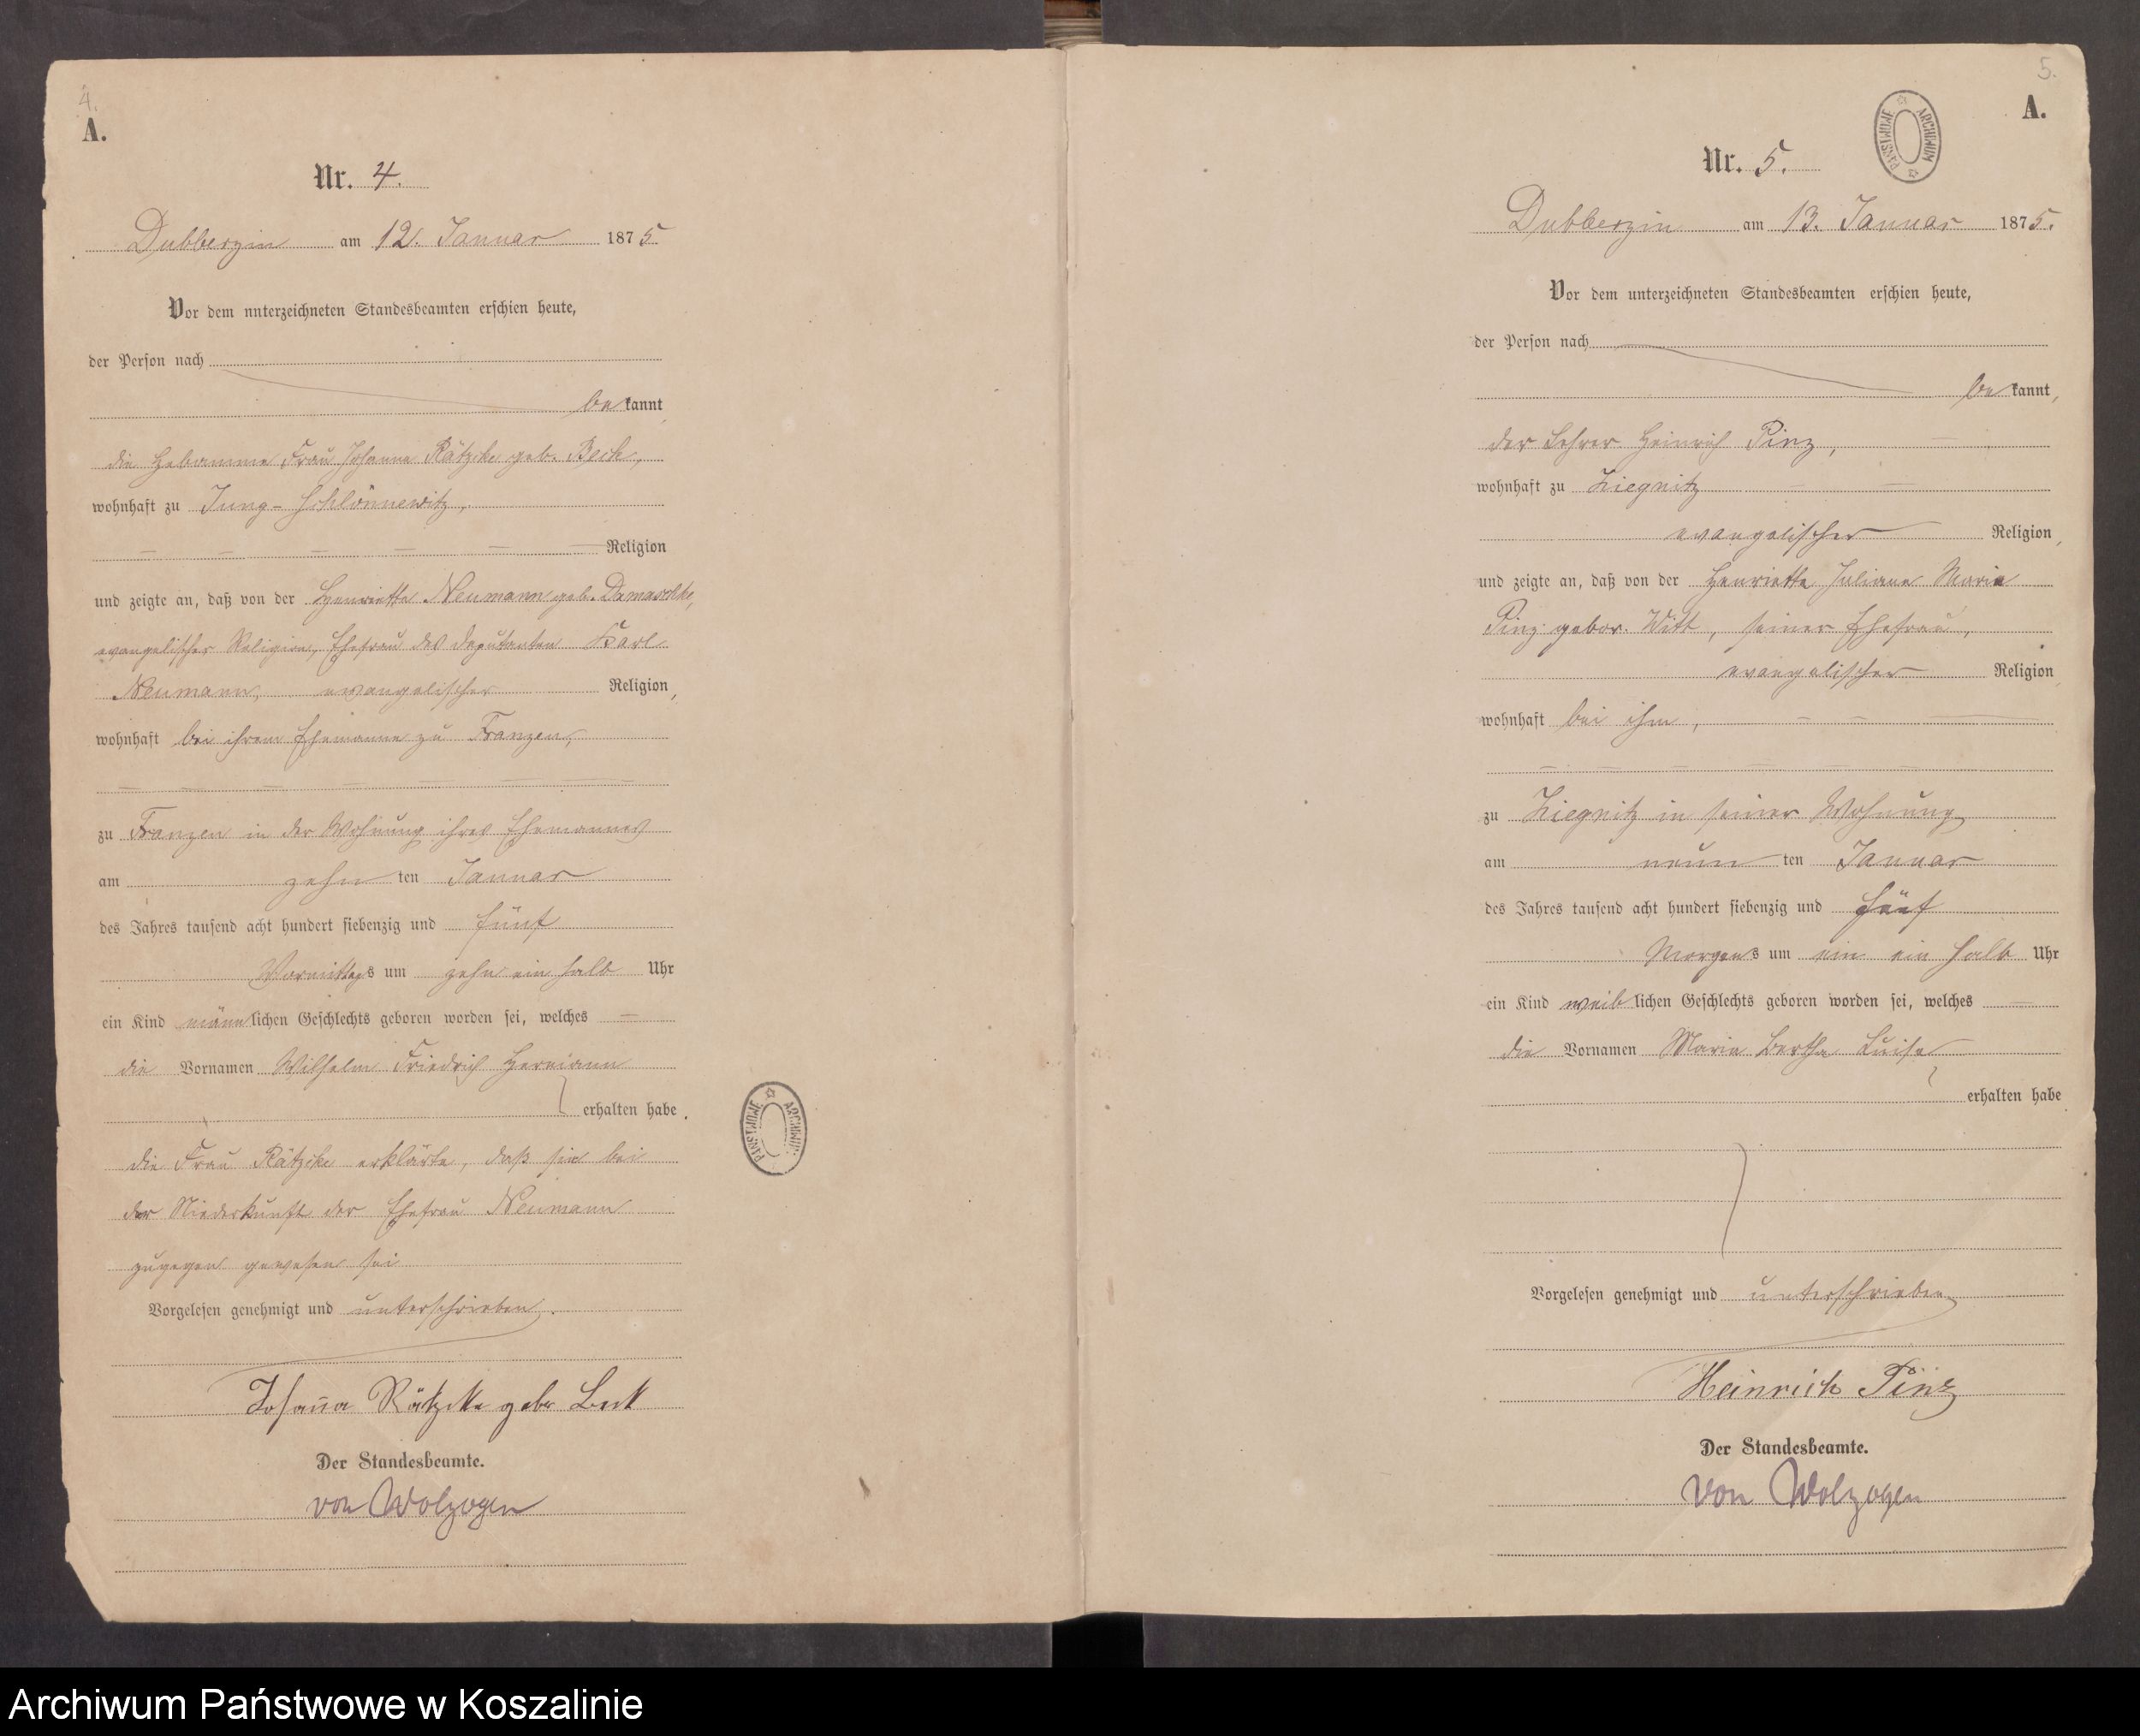 4.
A.
Nr. 4.
Dubberzin am 12. Januar 1875.
Vor dem unterzeichneten Standesbeamten erschien heute,
der Person nach
bekannt,
die Hebamme Frau Johanna Rätzke geb. Beck,
wohnhaft zu Jung-Schlönnewitz,
Religion
und zeigte an, daß von der Henriette Neumann geb. Damaschke,
evangelischer Religion, Ehefrau des Deputanten Karl
Neumann, evangelischer Religion,
wohnhaft bei ihrem Ehemanne zu Franzen,
zu Franzen in der Wohnung ihres Ehemannes
am zehn ten Januar
des Jahres tausend acht hundert siebenzig und fünf
Vormittags um zehn ein halb Uhr
ein Kind männlichen Geschlechts geboren worden sei, welches
die Vornamen Wilhelm Friedrich Hermann
erhalten habe.
die Frau Rätzke erklärte, daß sie bei
der Niederkunft der Ehefrau Neumann
zugegen gewesen sei
Vorgelesen genehmigt und unterschrieben.
Johanna Rätzke gebr Beck
Der Standesbeamte.
von Wolzogen
PAŃSTWOWE ARCHIWUM
5.
A.
PAŃSTWOWE ARCHIWUM
Nr. 5.
Dubberzin am 13. Januar 1875.
Vor dem unterzeichneten Standesbeamten erschien heute,
der Person nach
bekannt,
der Lehrer Heinrich Pinz,
wohnhaft zu Ziegnitz
evangelischer Religion,
und zeigte an, daß von der Henriette Juliane Marie
Pinz gebor. Witt, seiner Ehefrau,
evangelischer Religion,
wohnhaft bei ihm,
zu Ziegnitz in seiner Wohnung
am neun ten Januar
des Jahres tausend acht hundert siebenzig und fünf
Morgens um ein ein halb Uhr
ein Kind weiblichen Geschlechts geboren worden sei, welches
die Vornamen Marie Bertha Luise
erhalten habe
Vorgelesen genehmigt und unterschrieben
Heinrich Pinz
Der Standesbeamte.
von Wolzogen
Archiwum Państwowe w Koszalinie